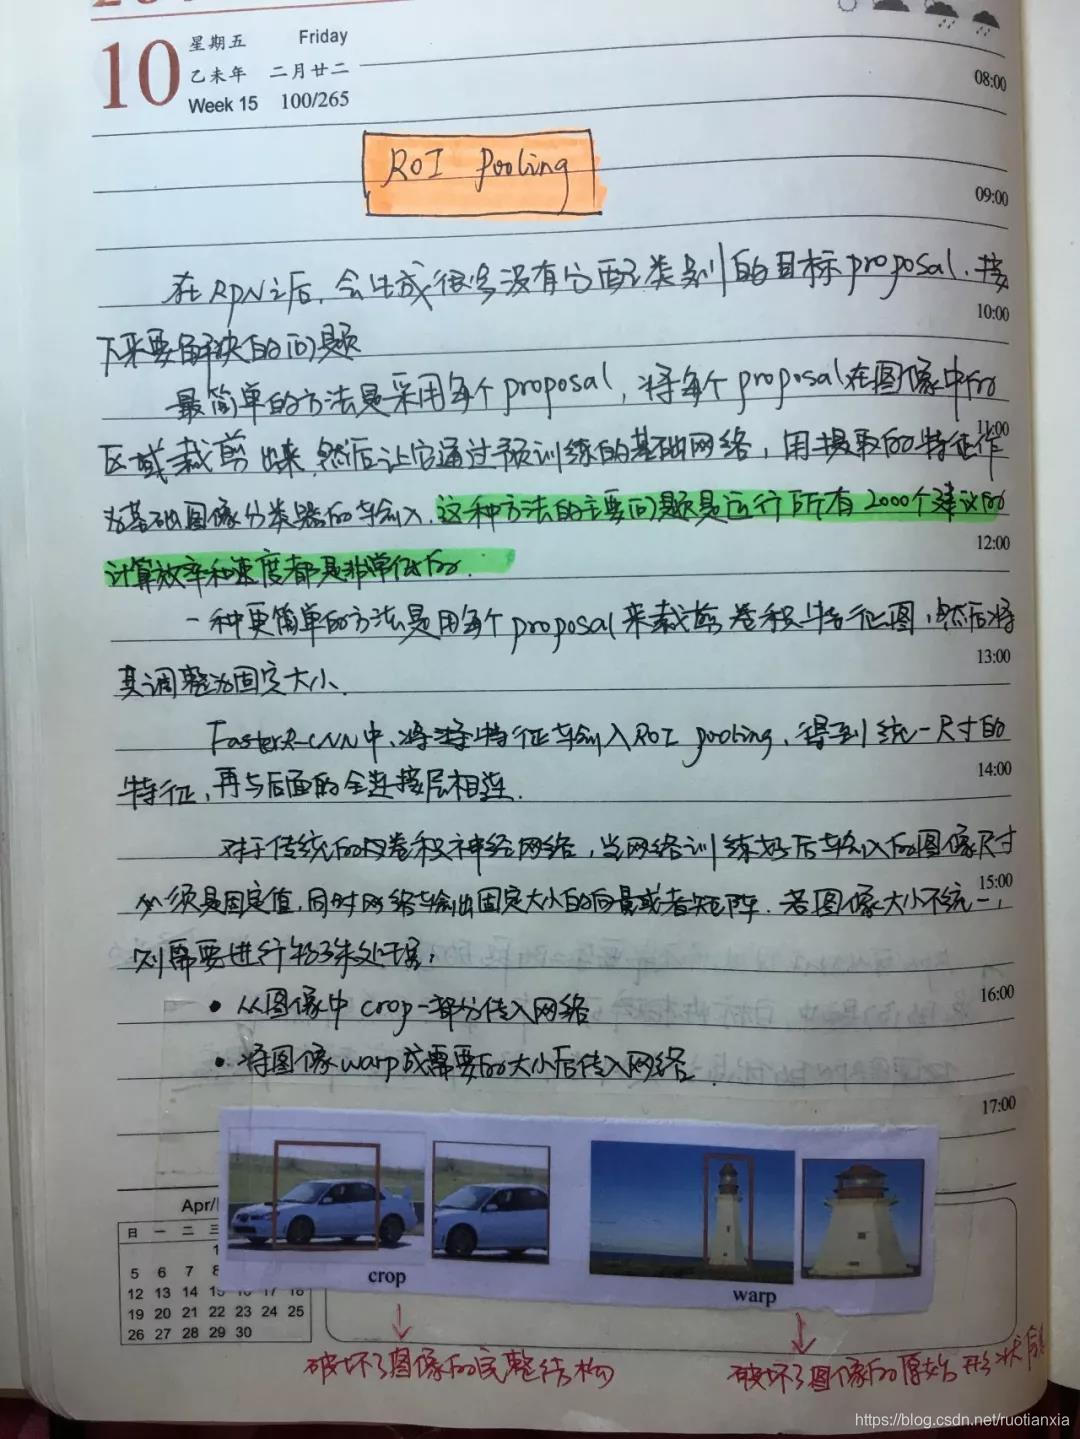 10 星期五 Friday
乙未年 二月廿二
Week 15 100/265
08:00
RoI Pooling
09:00
在RPN之后,会生成很多没有分配类别的目标proposal.接
10:00
下来要解决的问题
最简单的方法是采用每个proposal,将每个proposal在图像中的
11:00
区域裁剪出来,然后让它通过预训练的基础网络,用提取的特征作
为基础图像分类器的输入.这种方法的主要问题是运行所有2000个建议的
12:00
计算效率和速度都是非常低的.
一种更简单的方法是用每个proposal来裁剪卷积特征图,然后将
13:00
其调整为固定大小.
Faster R-CNN中,将特征输入RoI pooling,得到统一尺寸的
14:00
特征,再与后面的全连接层相连.
对于传统的卷积神经网络,当网络训练好后输入的图像尺寸
15:00
必须是固定值,同时网络输出固定大小的向量或者矩阵.若图像大小不统一,
则需要进行特殊处理:
16:00
• 从图像中crop一部分传入网络
• 将图像warp成需要的大小后传入网络
17:00
Apr/
日 一 二 三
1
5 6 7 8
12 13 14 15 16 17 18
19 20 21 22 23 24 25
26 27 28 29 30
crop
warp
破坏了图像的完整结构
破坏了图像的原始形状信
https://blog.csdn.net/ruotianxia